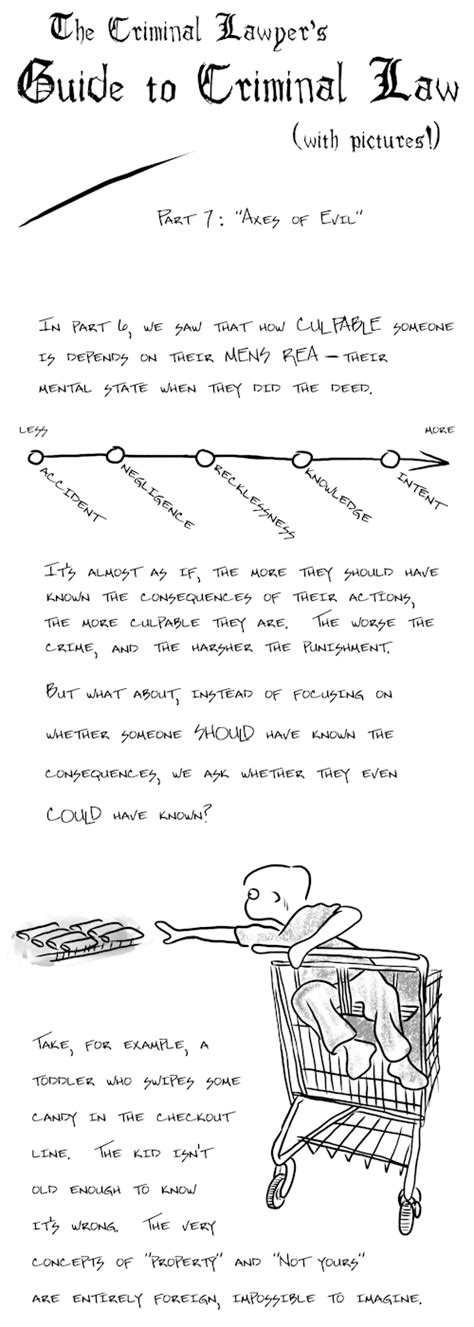 The Criminal Lawyer's
Guide to Criminal Law
(with pictures!)
PART 7: "AXES OF EVIL"
IN PART 6, WE SAW THAT HOW CULPABLE SOMEONE
IS DEPENDS ON THEIR MENS REA – THEIR
MENTAL STATE WHEN THEY DID THE DEED.
LESS
MORE
ACCIDENT
NEGLIGENCE
RECKLESSNESS
KNOWLEDGE
INTENT
IT'S ALMOST AS IF, THE MORE THEY SHOULD HAVE
KNOWN THE CONSEQUENCES OF THEIR ACTIONS,
THE MORE CULPABLE THEY ARE. THE WORSE THE
CRIME, AND THE HARSHER THE PUNISHMENT.
BUT WHAT ABOUT, INSTEAD OF FOCUSING ON
WHETHER SOMEONE SHOULD HAVE KNOWN THE
CONSEQUENCES, WE ASK WHETHER THEY EVEN
COULD HAVE KNOWN?
TAKE, FOR EXAMPLE, A
TODDLER WHO SWIPES SOME
CANDY IN THE CHECKOUT
LINE. THE KID ISN'T
OLD ENOUGH TO KNOW
IT'S WRONG. THE VERY
CONCEPTS OF "PROPERTY" AND "NOT YOURS"
ARE ENTIRELY FOREIGN, IMPOSSIBLE TO IMAGINE.